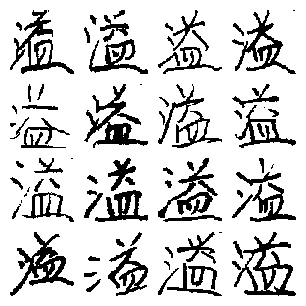 溢溢溢溢
溢溢溢溢
溢溢溢溢
溢溢溢溢